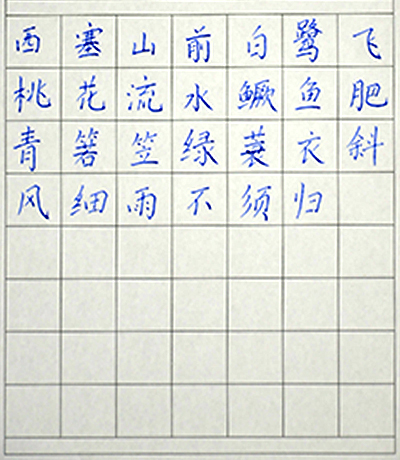 西塞山前白鹭飞
桃花流水鳜鱼肥
青箬笠绿蓑衣斜
风细雨不须归